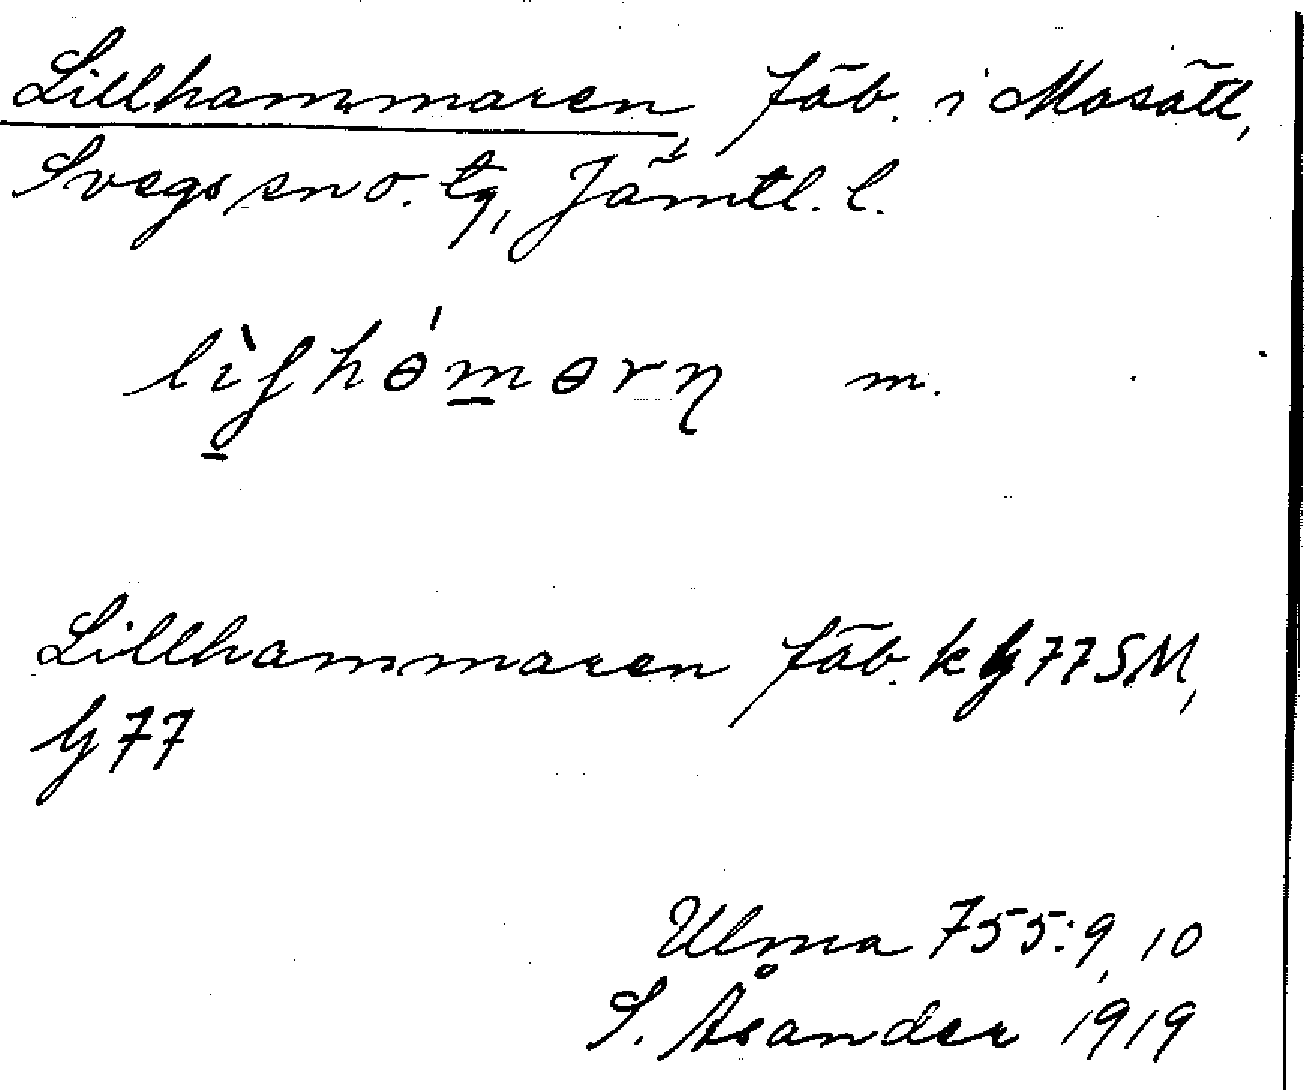 Lillhammaren, fäb. i Mosätt,
Svegs sn o. tg, Jämtl. l.
lìʃhɵ́mɵrn m.
Lillhammaren fäb. k Hj 77 SM,
Hj 77
Ulma 755:9, 10
S. Åsander 1919